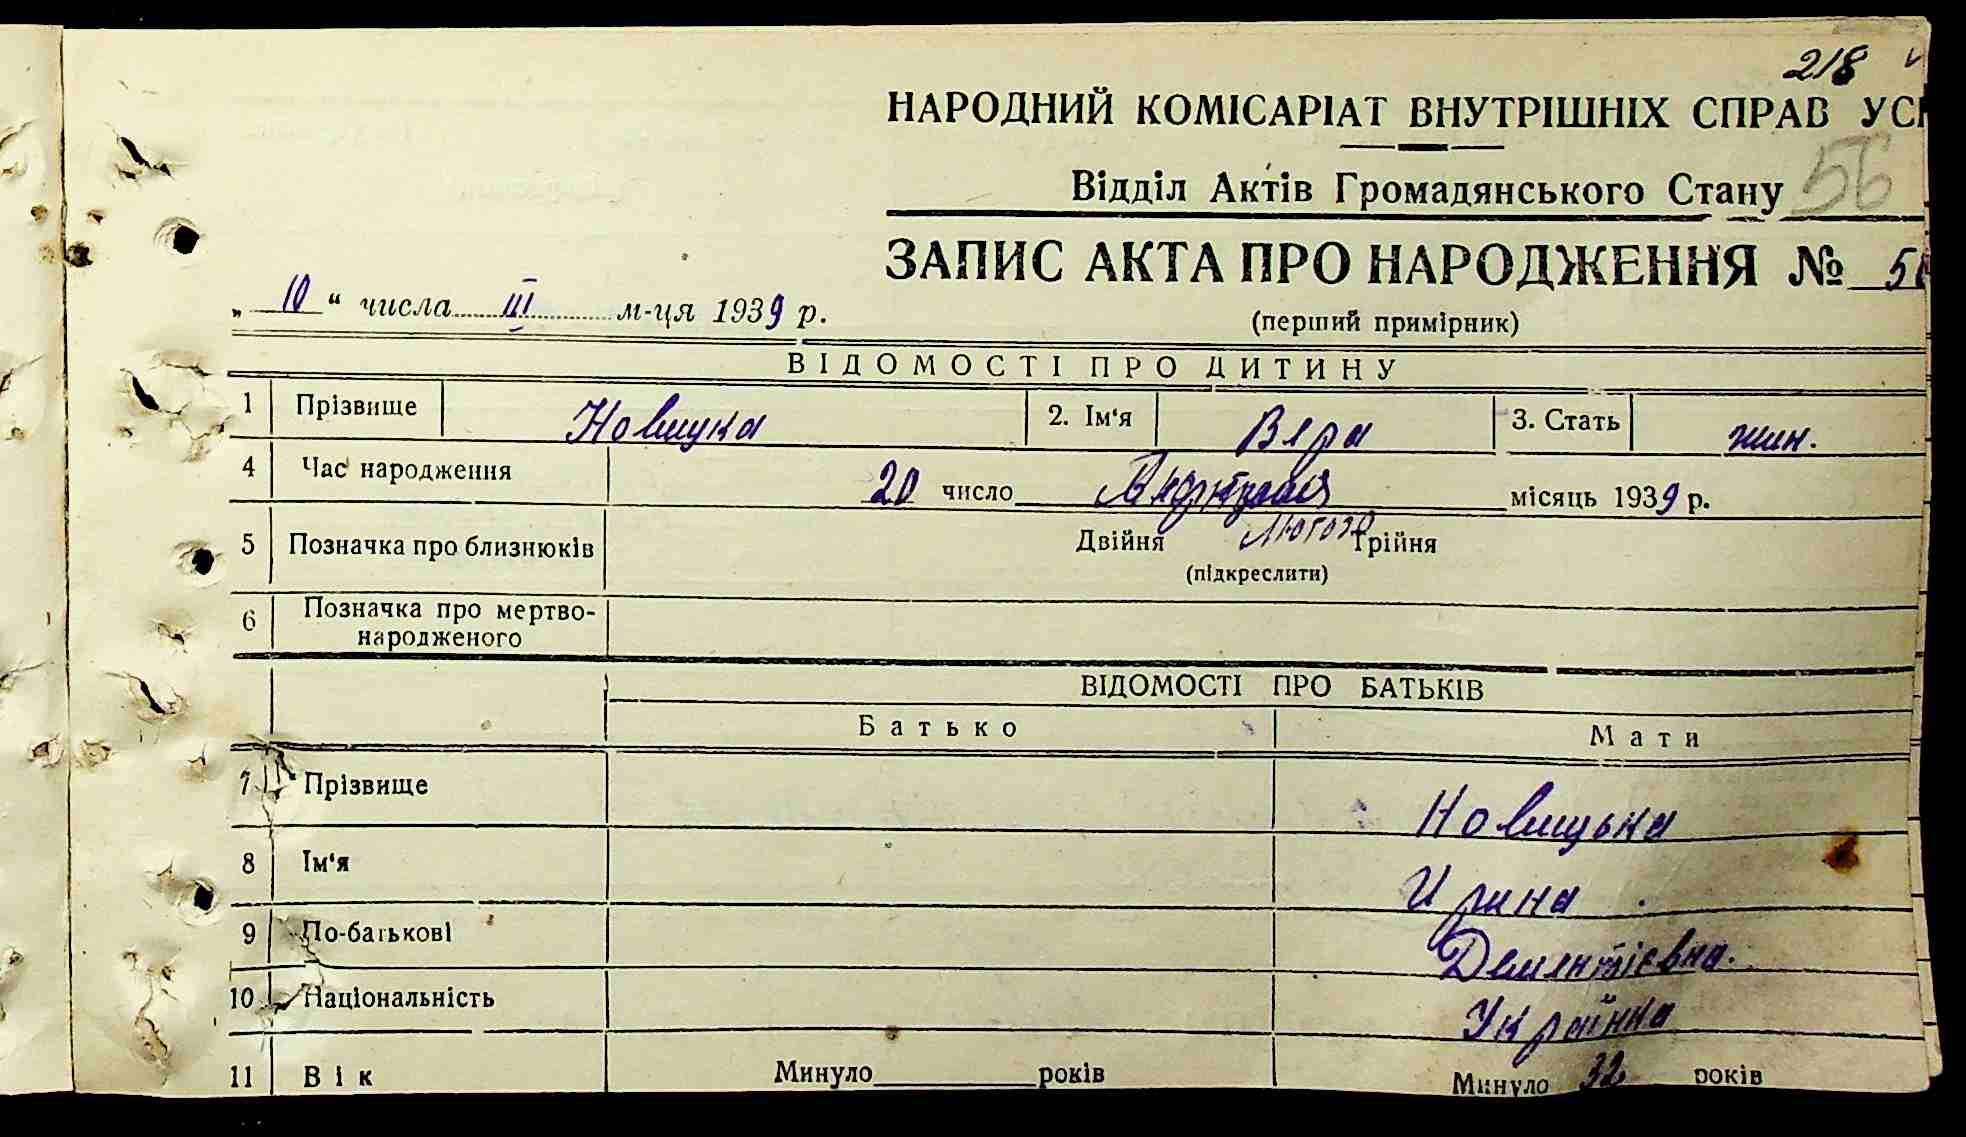 218
НАРОДНИЙ КОМІСАРІАТ ВНУТРІШНІХ СПРАВ
Відділ Актів Громадянського Стану 56
ЗАПИС АКТА ПРО НАРОДЖЕННЯ №
„ 10 “ числа III м-ця 1939 р.
(перший примірник)
ВІДОМОСТІ ПРО ДИТИНУ
1 Прізвище Новицка 2. Ім‘я Вера 3. Стать жін.
4 Час народження 20 число місяць 1939 р.
лютого
5 Позначка про близнюків Двійня Трійня
(підкреслити)
6 Позначка про мертво-
народженого
ВІДОМОСТІ ПРО БАТЬКІВ
Батько Мати
7 Прізвище Новицька
8 Ім‘я Ирина
9 По-батькові Дементієвна.
10 Національність Українка
11 Вік Минуло років Минуло 32 років